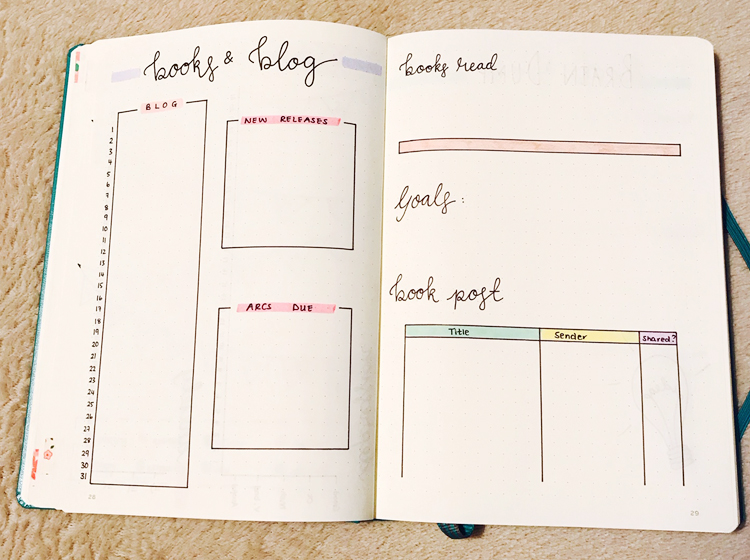 books & blog
BLOG
1
2
3
4
5
6
7
8
9
10
11
12
13
14
15
16
17
18
19
20
21
22
23
24
25
26
27
28
29
30
31
NEW RELEASES
ARCS DUE
28
books read
Goals:
book post
Title Sender shared?
29